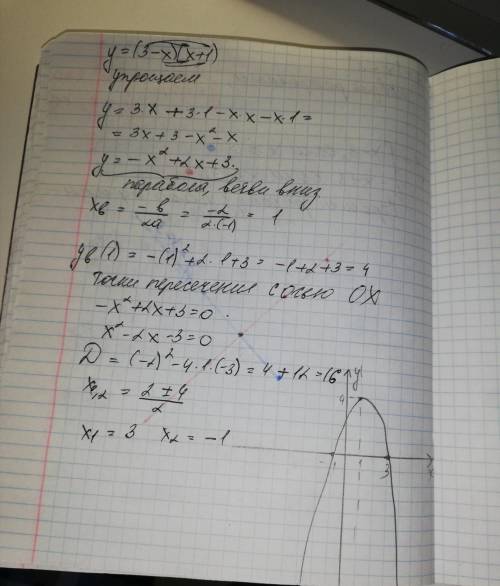 y=(3-x)(x+1)
упрощаем
y=3·x+3·1-x·x-x·1=
=3x+3-x²-x
y=-x²+2x+3.
парабола, ветви вниз
xв = -b/2a = -2/2·(-1) = 1
yв(1) = -(1)²+2·1+3 = -1+2+3=4
Точки пересечения с осью OX
-x²+2x+3=0
x²-2x-3=0
D = (-2)²-4·1·(-3) = 4+12=16
x₁,₂ = 2±4/2
x₁ = 3 x₂ = -1
y
4
-1 1 3 x